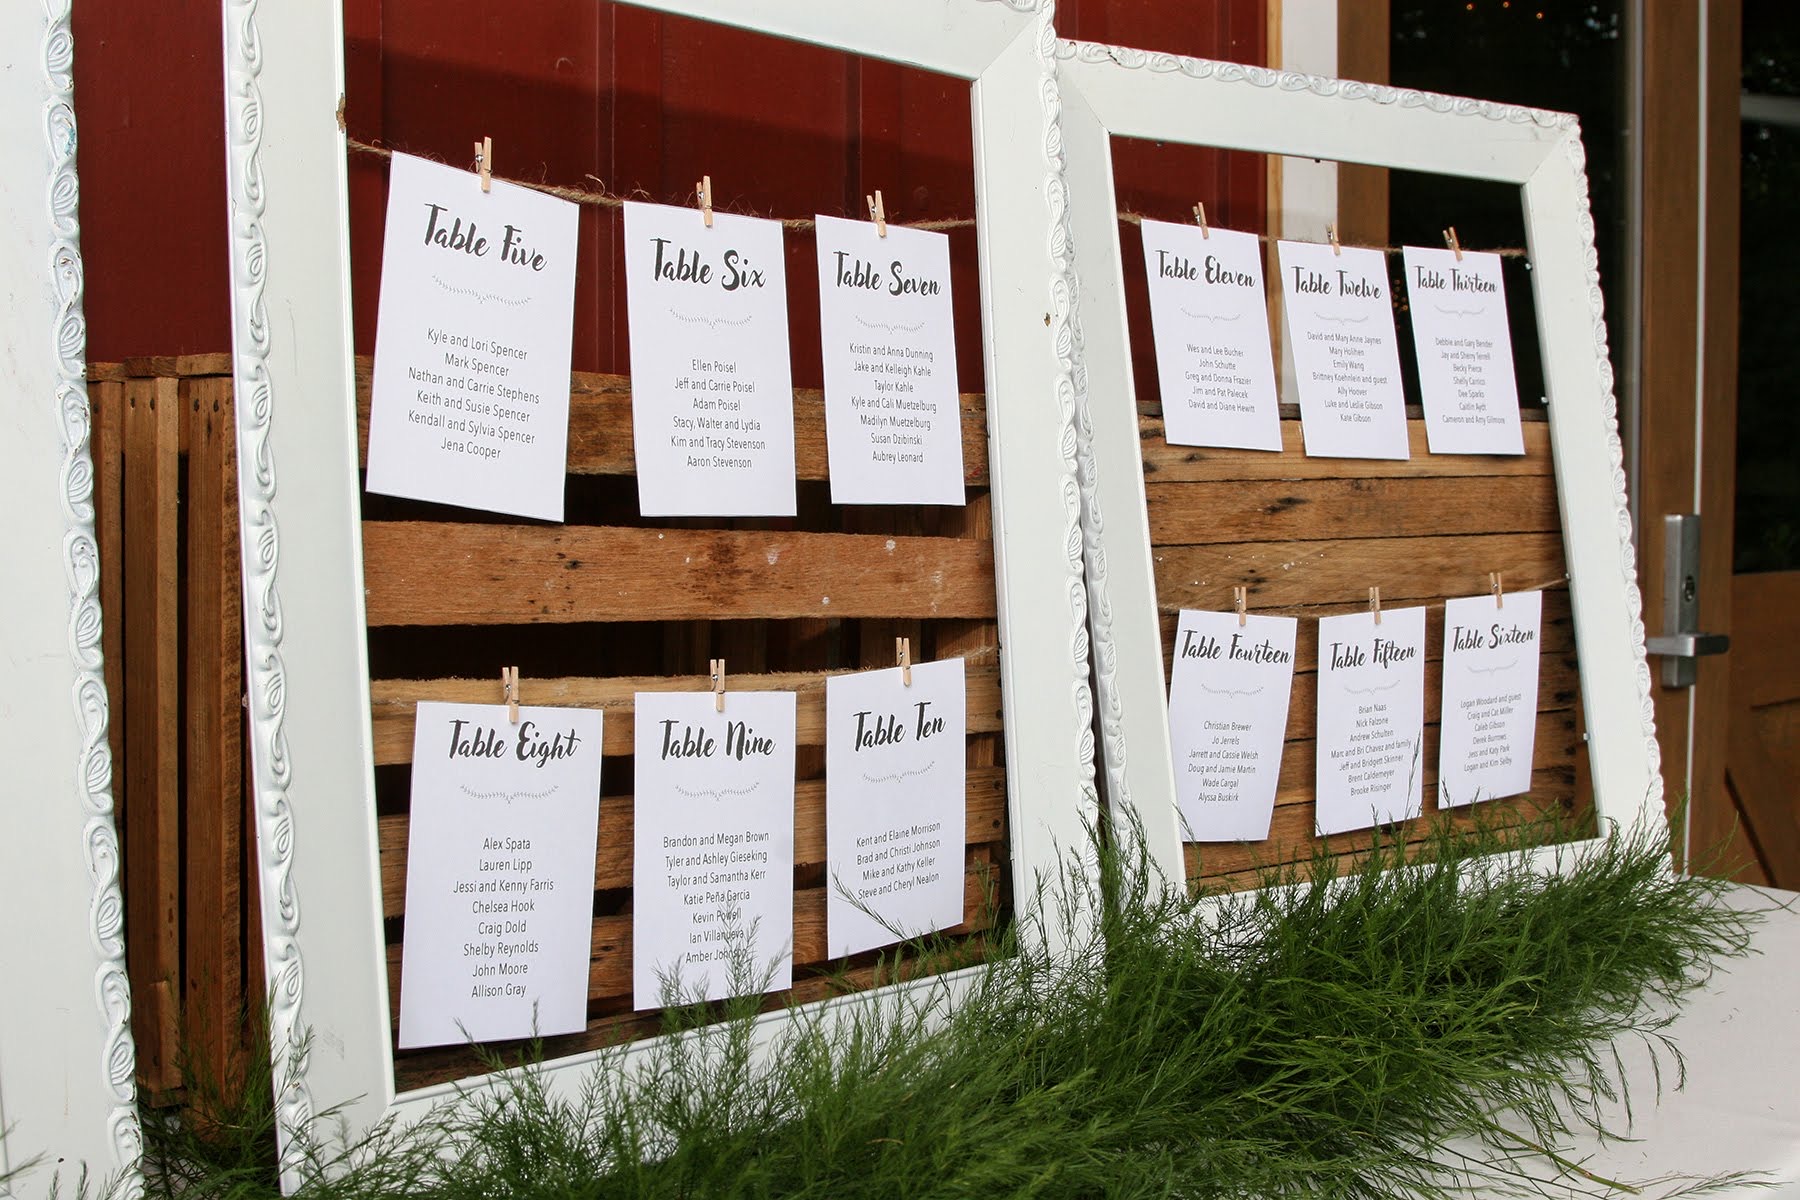 Table Five
Kyle and Lori Spencer
Mark Spencer
Nathan and Carrie Stephens
Keith and Susie Spencer
Kendall and Sylvia Spencer
Jena Cooper
Table Six
Ellen Poisel
Jeff and Carrie Poisel
Adam Poisel
Stacy, Walter and Lydia
Kim and Tracy Stevenson
Aaron Stevenson
Table Seven
Kristin and Anna Dunning
Jake and Kelleigh Kahle
Taylor Kahle
Kyle and Cali Muetzelburg
Madilyn Muetzelburg
Susan Dzibinski
Aubrey Leonard
Table Eight
Alex Spata
Lauren Lipp
Jessi and Kenny Farris
Chelsea Hook
Craig Dold
Shelby Reynolds
John Moore
Allison Gray
Table Nine
Brandon and Megan Brown
Tyler and Ashley Gieseking
Taylor and Samantha Kerr
Katie Peña Garcia
Kevin Powell
Ian Villanueva
Amber Johnson
Table Ten
Kent and Elaine Morrison
Brad and Christi Johnson
Mike and Kathy Keller
Steve and Cheryl Nealon
Table Eleven
Wes and Lee Bucher
John Schutte
Greg and Donna Frazier
Jim and Pat Palecek
David and Diane Hewitt
Table Twelve
David and Mary Anne Jaynes
Mary Holihen
Emily Wang
Brittney Koehnlein and guest
Ally Hoover
Luke and Leslie Gibson
Kate Gibson
Table Thirteen
Debbie and Gary Bender
Jay and Sherry Terrell
Becky Pierce
Shelly Carrico
Dee Sparks
Caitlin Aydt
Cameron and Amy Gilmore
Table Fourteen
Christian Brewer
Jo Jerrels
Jarrett and Cassie Welsh
Doug and Jamie Martin
Wade Cargal
Alyssa Buskirk
Table Fifteen
Brian Naas
Nick Falzone
Andrew Schulten
Marc and Bri Chavez and family
Jeff and Bridgett Skinner
Brent Caldemeyer
Brooke Risinger
Table Sixteen
Logan Woodard and guest
Craig and Cat Miller
Caleb Gibson
Derek Burrows
Jess and Katy Park
Logan and Kim Selby